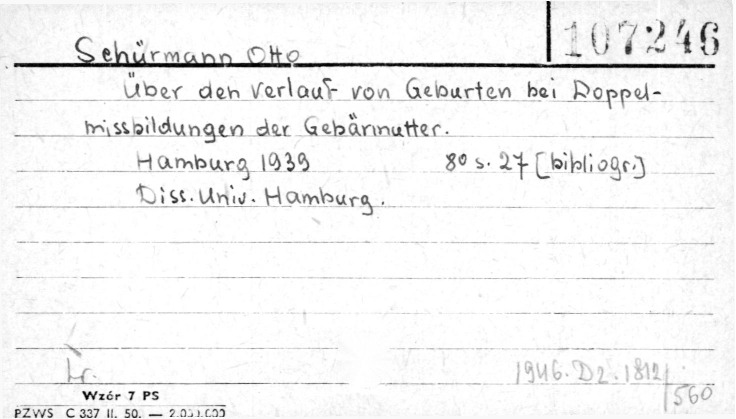 107246
Schürmann Otto
Über den Verlauf von Geburten bei Doppel-
missbildungen der Gebärmutter.
Hamburg 1939 8° s. 27 [bibliogr.]
Diss. Univ. Hamburg.
1946. D2. 1812/560
Wzór 7 PS
PZWS C 337 II. 50. — 2.000.000